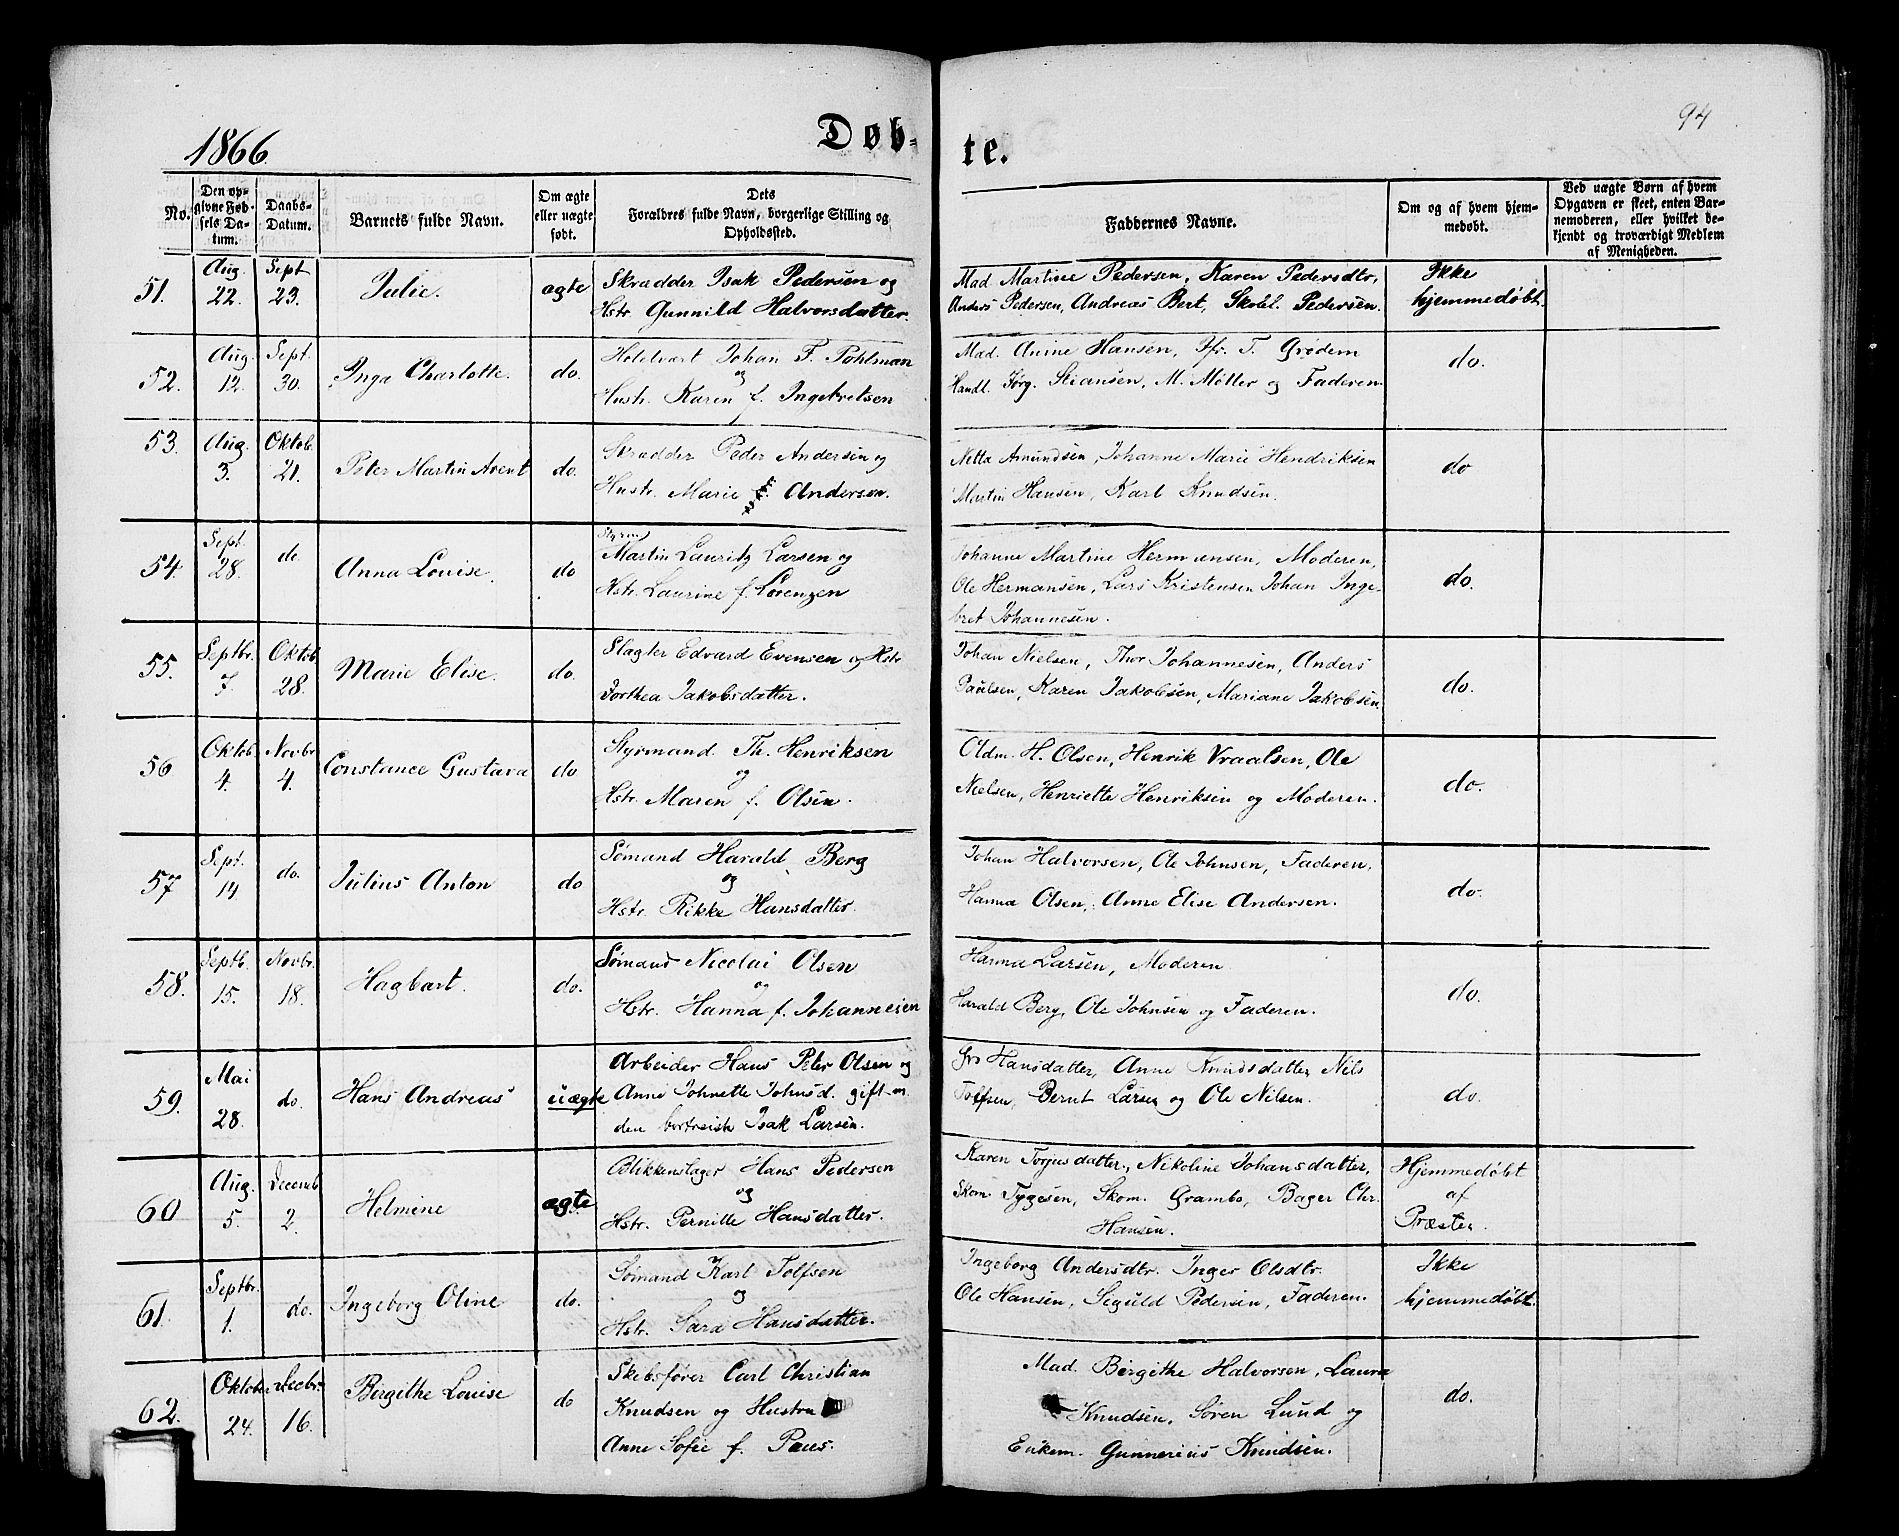 94
1866
Døb-
te.
No.
Den op-
givne Fød-
sels Da-
tum.
Daabs-
Datum.
Barnets fulde Navn.
Om ægte
eller uægte
født.
Dets
Forældres fulde Navn, borgerlige Stilling og
Opholdssted.
Faddernes Navne.
Om og af hvem hjem-
medøbt.
Ved uægte Børn af hvem
Opgaven er skeet, enten Bar-
nemoderen, eller hvilket be-
kjendt og troværdigt Medlem
af Menigheden.
51.
Aug.
22.
Sept
23.
Julie.
ægte
Skrædder Isak Pedersen og
Hstr. Gunnild Halvorsdatter.
Mad. Martine Pedersen, Karen Pedersdtr,
Anders Pedersen, Andreas Bert, Skolel. Pedersen.
Ikke
hjemmedøbt.
52.
Aug.
12.
Sept.
30.
Inga Charlotte.
do.
Hotelvært Johan F. Pohlman
og
Hustr. Karen f. Ingebretsen
Mad. Anine Hansen, Jfr. T. Grødem
Handl. Jørg. Stiansen, M. Møller og Faderen.
do.
53.
Aug.
3.
Oktob.
21.
Peter Martin Avent
do.
Skrædder Peder Andersen og
Hustr. Marie f. Andersen.
Netta Amundsen, Johanne Marie Hendriksen
Martin Hansen, Karl Knudsen.
do
54.
Sept.
28.
do.
Anna Louise.
do
Styrm.
Martin Lauritz Larsen og
Hstr. Laurine f. Lorenzen
Johanne Martine Hermansen, Moderen,
Ole Hermansen, Lars Kristensen Johan Inge-
bret Johannesen.
do.
55.
Septbr.
7.
Oktob.
28.
Marie Elise.
do.
Slagter Edvard Evensen og Hstr
Dorthea Jakobsdatter.
Johan Nielsen, Thor Johannesen, Anders
Paulsen, Karen Jakobsen, Mariane Jakobsen
do.
56
Oktob.
4.
Novbr
4.
Constance Gustava
do
Styrmand Th. Henriksen
og
Hstr. Maren f. Olsen.
Oldm. H. Olsen, Henrik Vraalsen, Ole
Nielsen, Henriette Henriksen og Moderen.
do.
57
Sept.
14
do.
Julius Anton
do
Sømand Harald Berg
og
Hstr. Rikke Hansdatter.
Johan Halvorsen, Ole Johnsen, Faderen,
Hanna Olsen, Anne Elise Andersen.
do.
58.
Septb.
15.
Novbr.
18.
Hagbart.
do.
Sømand Nicolai Olsen
og
Hstr. Hanna f. Johannesen
Hanna Larsen, Moderen
Harald Berg, Ole Johnsen og Faderen.
do.
59.
Mai
28.
do.
Hans Andreas
uægte
Arbeider Hans Peter Olsen og
Anne Johnette Johnsd. gift m.
den bortreiste Isak Larsen.
Gro Hansdatter, Anne Knudsdatter, Nils
Tolfsen, Bernt Larsen og Ole Nilsen.
do.
60
Aug.
5.
Decemb
2.
Helmine
ægte
Blikkenslager Hans Pedersen
og
Hstr. Pernille Hansdatter.
Karen Torjusdatter, Nikoline Johansdatter,
Skom. Tygesen, Skom. Grambo, Bager Chr.
Hansen.
Hjemmedøbt
af
Præsten.
61.
Septbr.
1.
do.
Ingeborg Oline
do.
Sømand Karl Tolfsen
og
Hstr. Sara Hansdatter.
Ingeborg Andersdtr. Inger Olsdtr.
Ole Hansen, Seguld Pedersen, Faderen.
Ikke
hjemmedøbt.
62.
Oktober
24.
Decbr.
16.
Birgithe Louise
do
Skibsfører Carl Christian
Knudsen og Hustru
Anne Sofie f. Paus.
Mad. Birgithe Halvorsen, Laura
Knudsen, Søren Lund og
Enkem. Gunnerius Knudsen.
do.